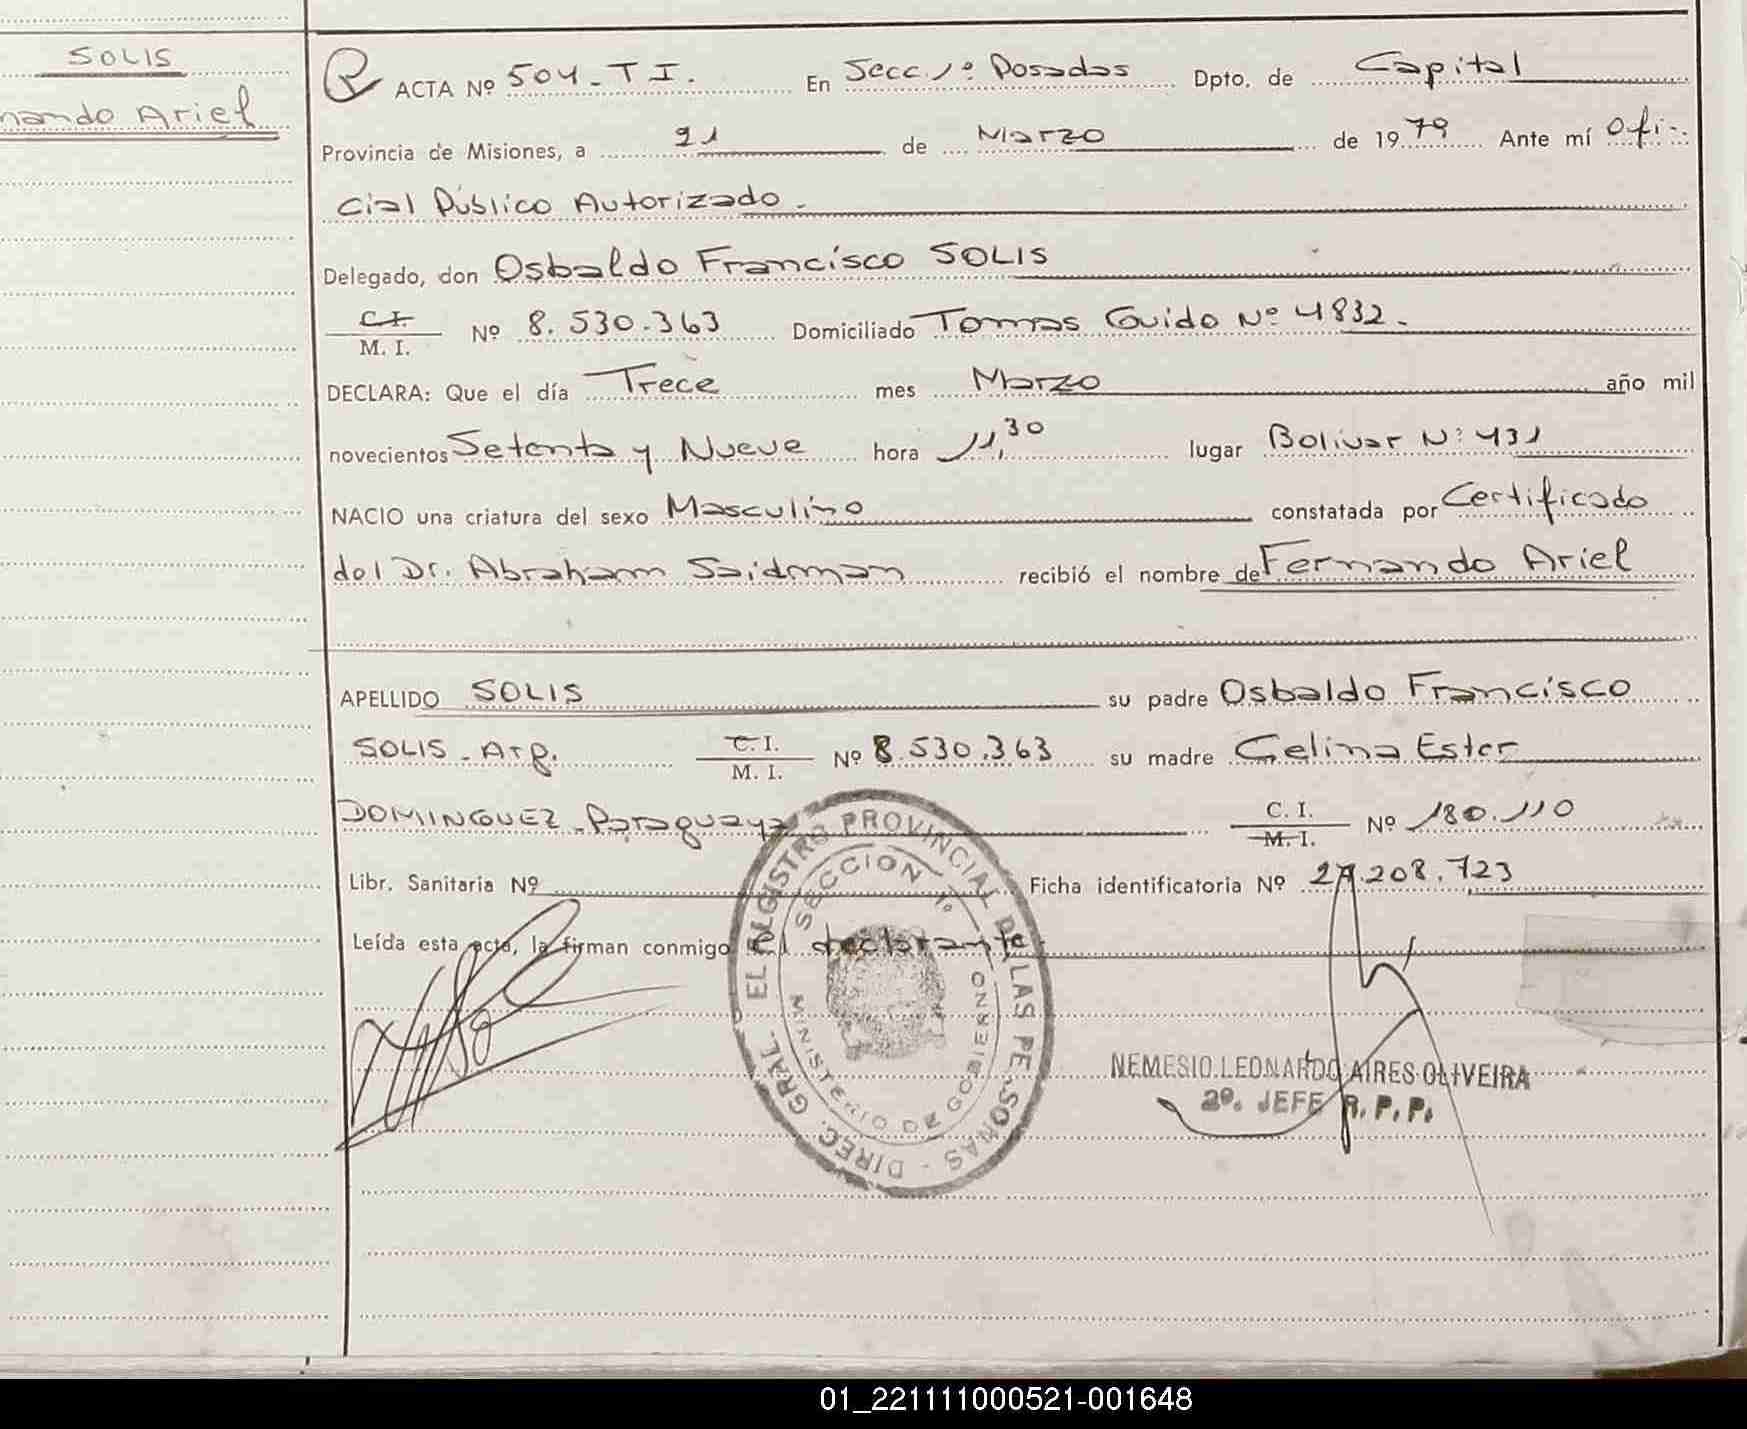 SOLIS
nando Ariel
R ACTA Nº 504 - T I. En Secc. 1º Posadas Dpto. de Capital
Provincia de Misiones, a 21 de Marzo de 1979 Ante mí Ofi-
cial Público Autorizado.
Delegado, don Osbaldo Francisco SOLIS
C.I.
M. I. Nº 8.530.363 Domiciliado Tomas Guido Nº 4832.
DECLARA: Que el día Trece mes Marzo año mil
novecientos Setenta y Nueve hora 11,30 lugar Bolivar Nº 431
NACIO una criatura del sexo Masculino constatada por Certificado
del Dr. Abraham Saidman recibió el nombre de Fernando Ariel
APELLIDO SOLIS su padre Osbaldo Francisco
SOLIS - Arg. C. I.
M. I. Nº 8.530.363 su madre Celina Ester
DOMINGUEZ - Paraguaya C. I.
M. I. Nº 180.110
Libr. Sanitaria Nº Ficha identificatoria Nº 27.208.723
Leída esta acta, la firman conmigo el declarante
DIREC. GRAL. EL REGISTRO PROVINCIAL DE LAS PERSONAS -
SECCION 1º
MINISTERIO DE GOBIERNO
NEMESIO LEONARDO AIRES OLIVEIRA
2º. JEFE R. P. P.
01_221111000521-001648